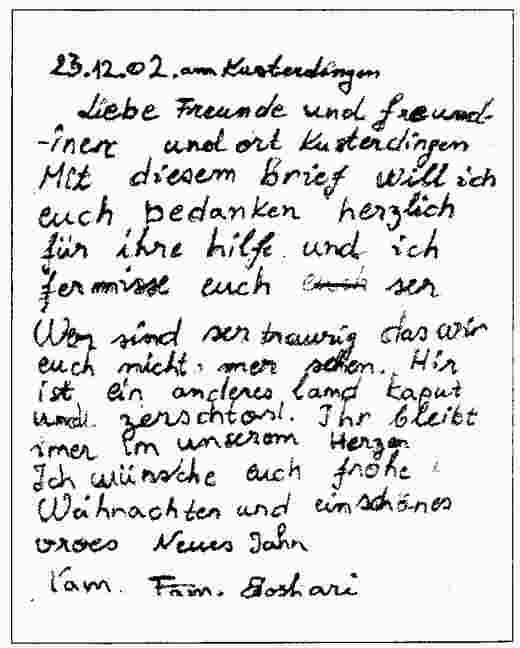 23.12.02. am Kusterdingen
Liebe Freunde und freund-
-inen und ort Kusterdingen
Mit diesem Brief will ich
euch bedanken herzlich
für ihre hilfe und ich
fermisse euch euch ser
Wir sind ser traurig das wir
euch nicht mer sehen. Hir
ist ein anderes land kaput
und zerschtort. Ihr bleibt
imer im unserem Herzen
Ich wünsche euch frohe
Weihnachten und ein schönes
Neues Jahr
Fam. Fam.